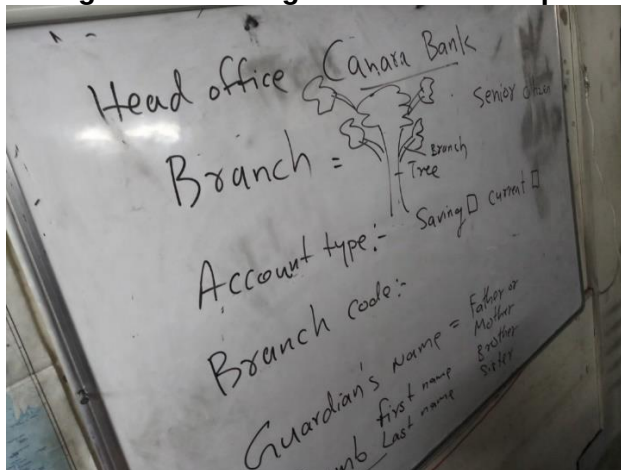 Head office Canara Bank
Senior citizen
Branch =
Branch
Tree
Account type:- Saving □ current □
Branch code:-
Guardian's Name = Father or
Mother
Brother
Sister
first name
Last name